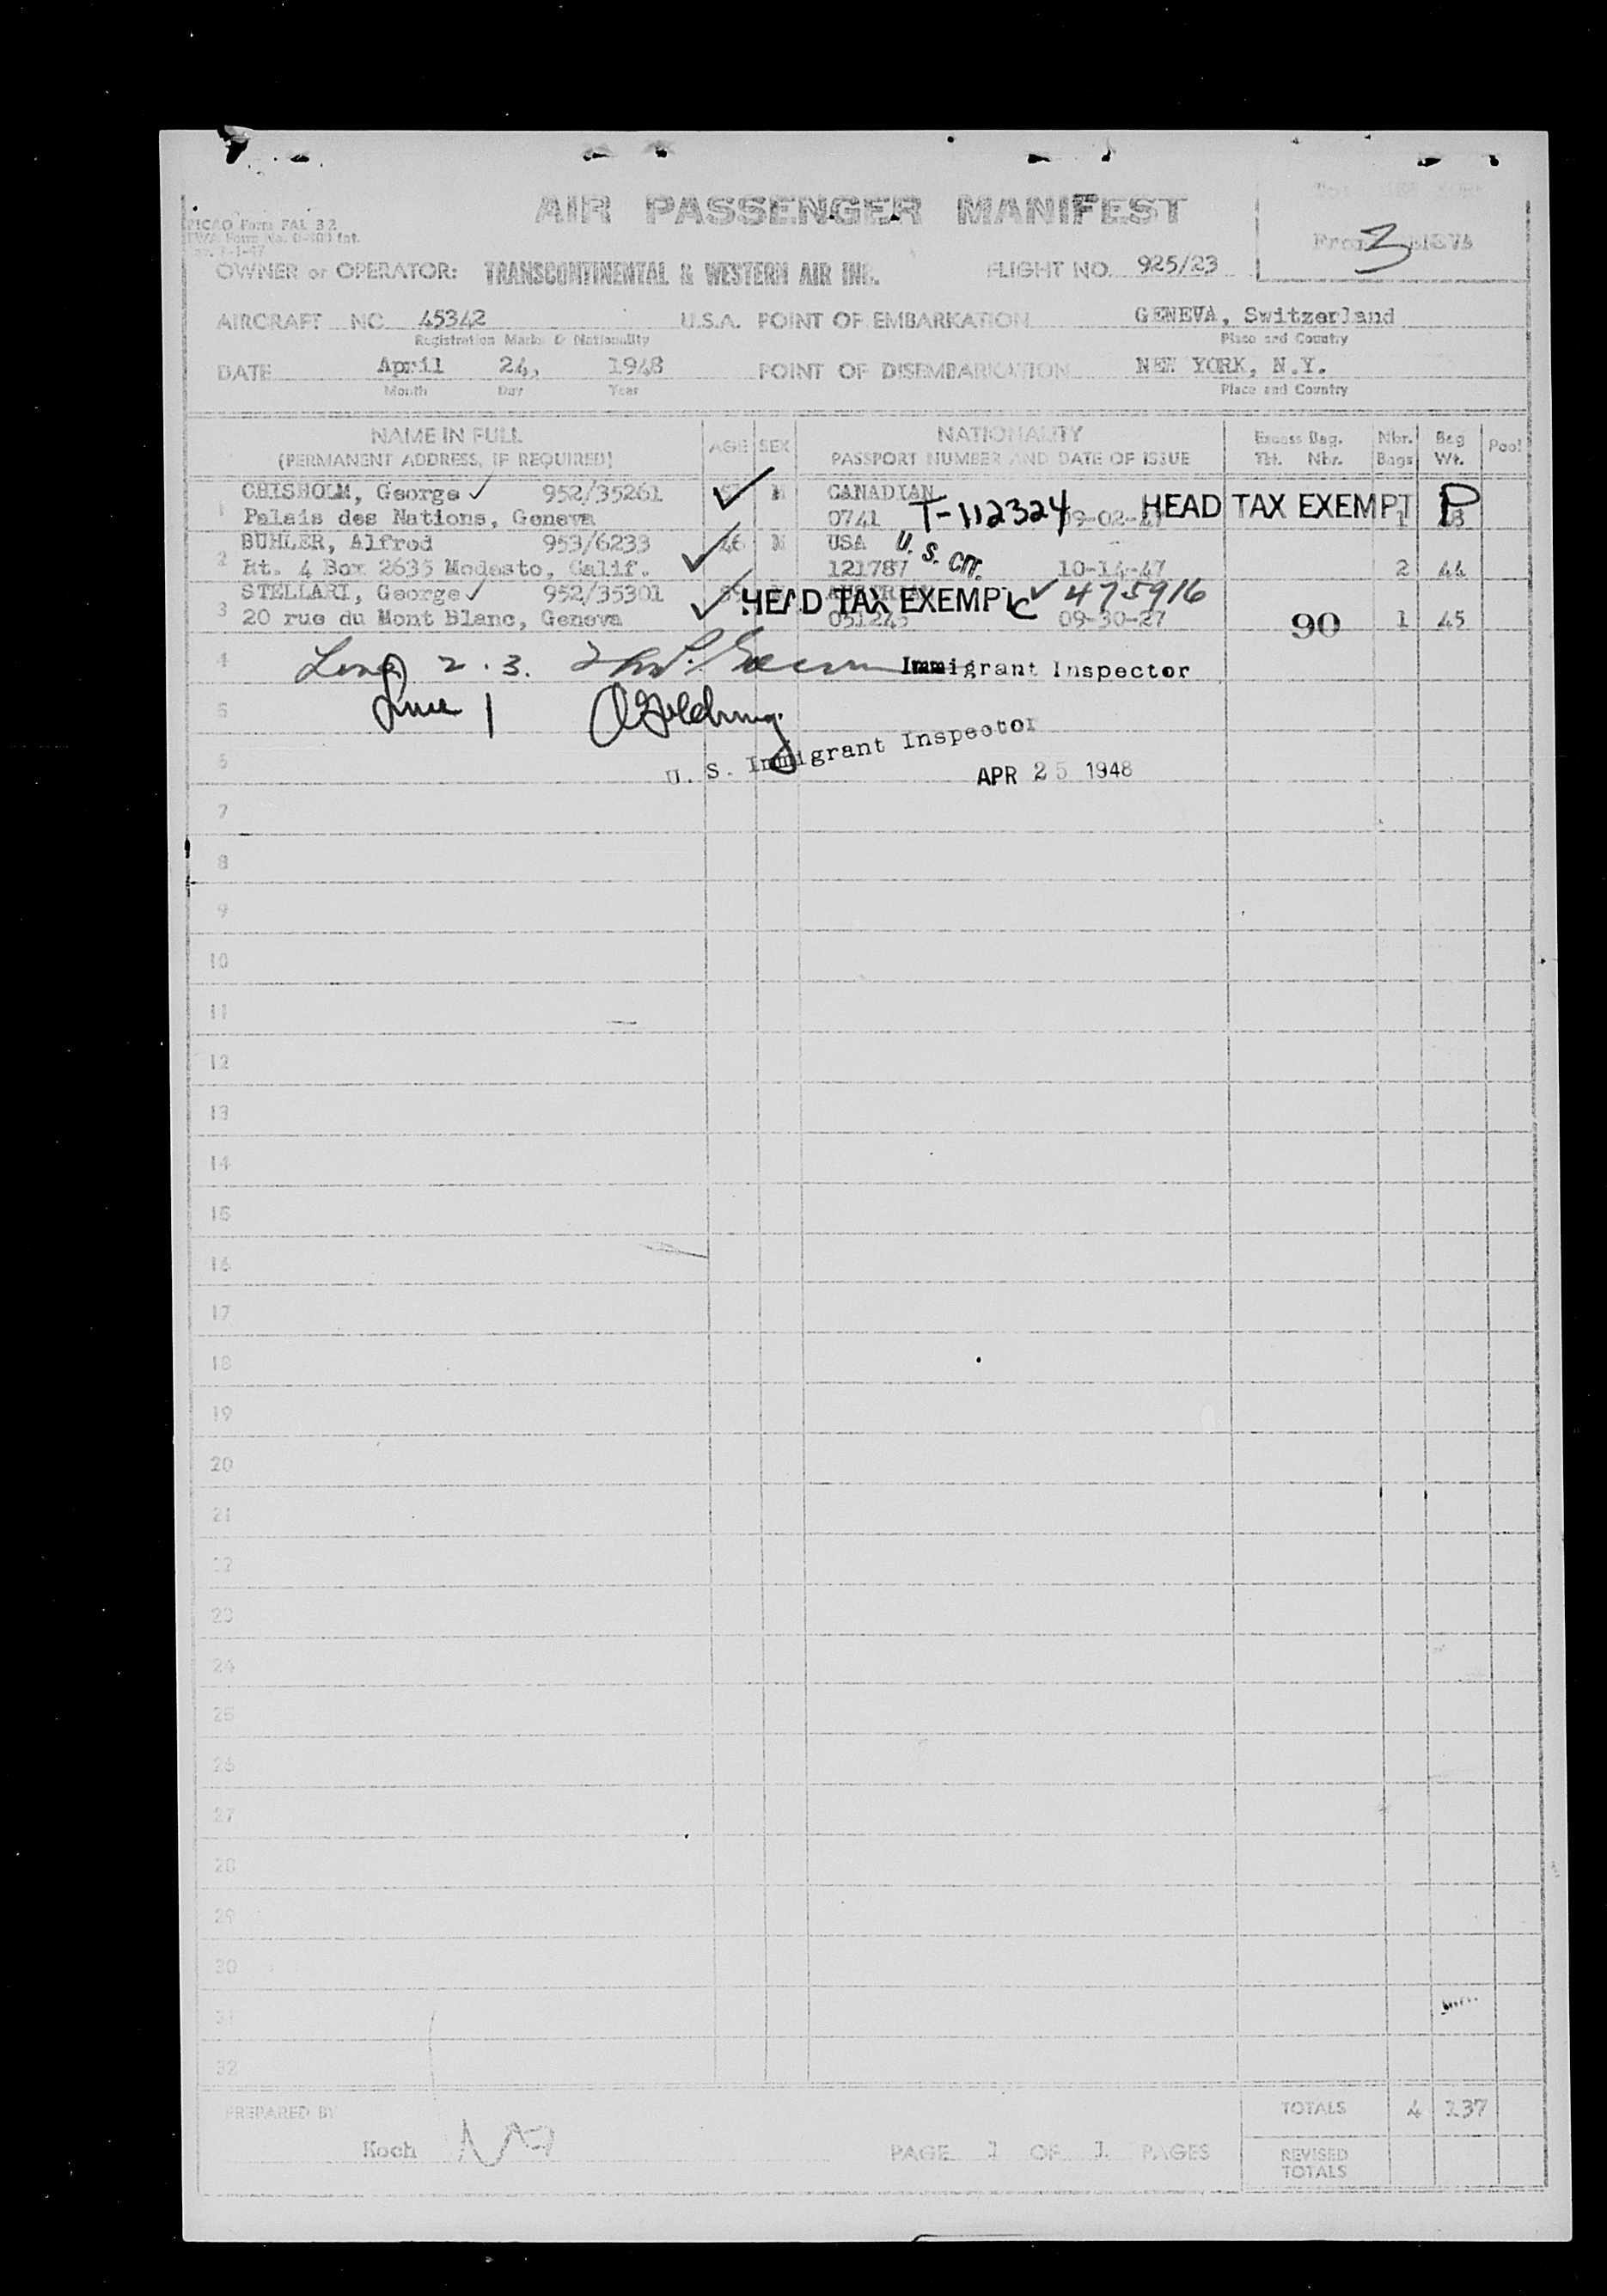 AIR PASSENGER MANIFEST
ICAO Form FAL 3 2
From 3
OWNER or OPERATOR: TRANSCONTINENTAL & WESTERN AIR INC. FLIGHT NO. 925/23
AIRCRAFT NO 45342 U.S.A. POINT OF EMBARKATION GENEVA, Switzerland
Registration Marks & Nationality Place and Country
DATE April 24, 1948 POINT OF DISEMBARKATION NEW YORK, N.Y.
Month Day Year Place and Country
NAME IN FULL AGE SEX NATIONALITY Excess Bag. Nbr. Bag Pool
(PERMANENT ADDRESS, IF REQUIRED) PASSPORT NUMBER AND DATE OF ISSUE Tkt. Nbr. Bags Wt.
CHISHOLM, George ✓ 952/35261 ✓ M CANADIAN
1 Palais des Nations, Geneva 0741 T-112324 09-02-47 HEAD TAX EXEMPT 1 P
BUHLER, Alfred 953/6233 46 M USA U. S. CIT.
2 Rt. 4 Box 2635 Modesto, Calif. ✓ 121787 10-14-47 2 44
STELLARI, George ✓ 952/35301 ✓ HEAD TAX EXEMPT C ✓ 475916
3 20 rue du Mont Blanc, Geneva 051245 09-30-27 90 1 45
4 2. 3. Immigrant Inspector
5 Line 1
6 U. S. Immigrant Inspector
APR 25 1948
7
8
9
10
11
12
13
14
15
16
17
18
19
20
21
22
23
24
25
26
27
28
29
30
31
32
PREPARED BY TOTALS 4 137
Koch PAGE 1 OF 1 PAGES REVISED
TOTALS